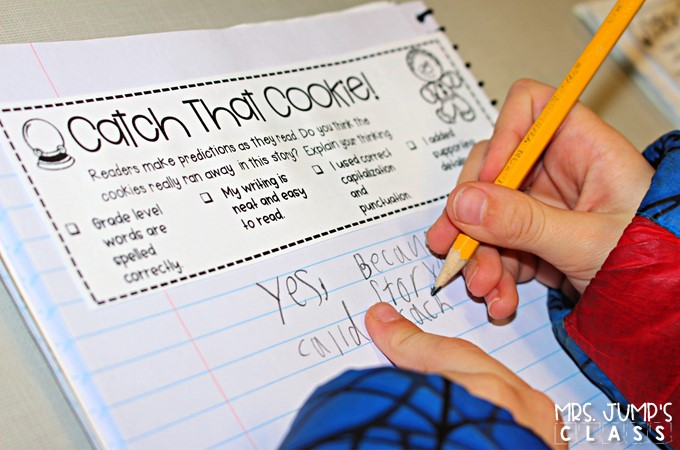 Catch That Cookie!
Readers make predictions as they read. Do you think the
cookies really ran away in this story? Explain your thinking.
Grade level
words are
spelled
correctly.
My writing is
neat and easy
to read.
I used correct
capitalization
and
punctuation.
I added
Yes, Becau
story
MRS. JUMP'S
CLASS